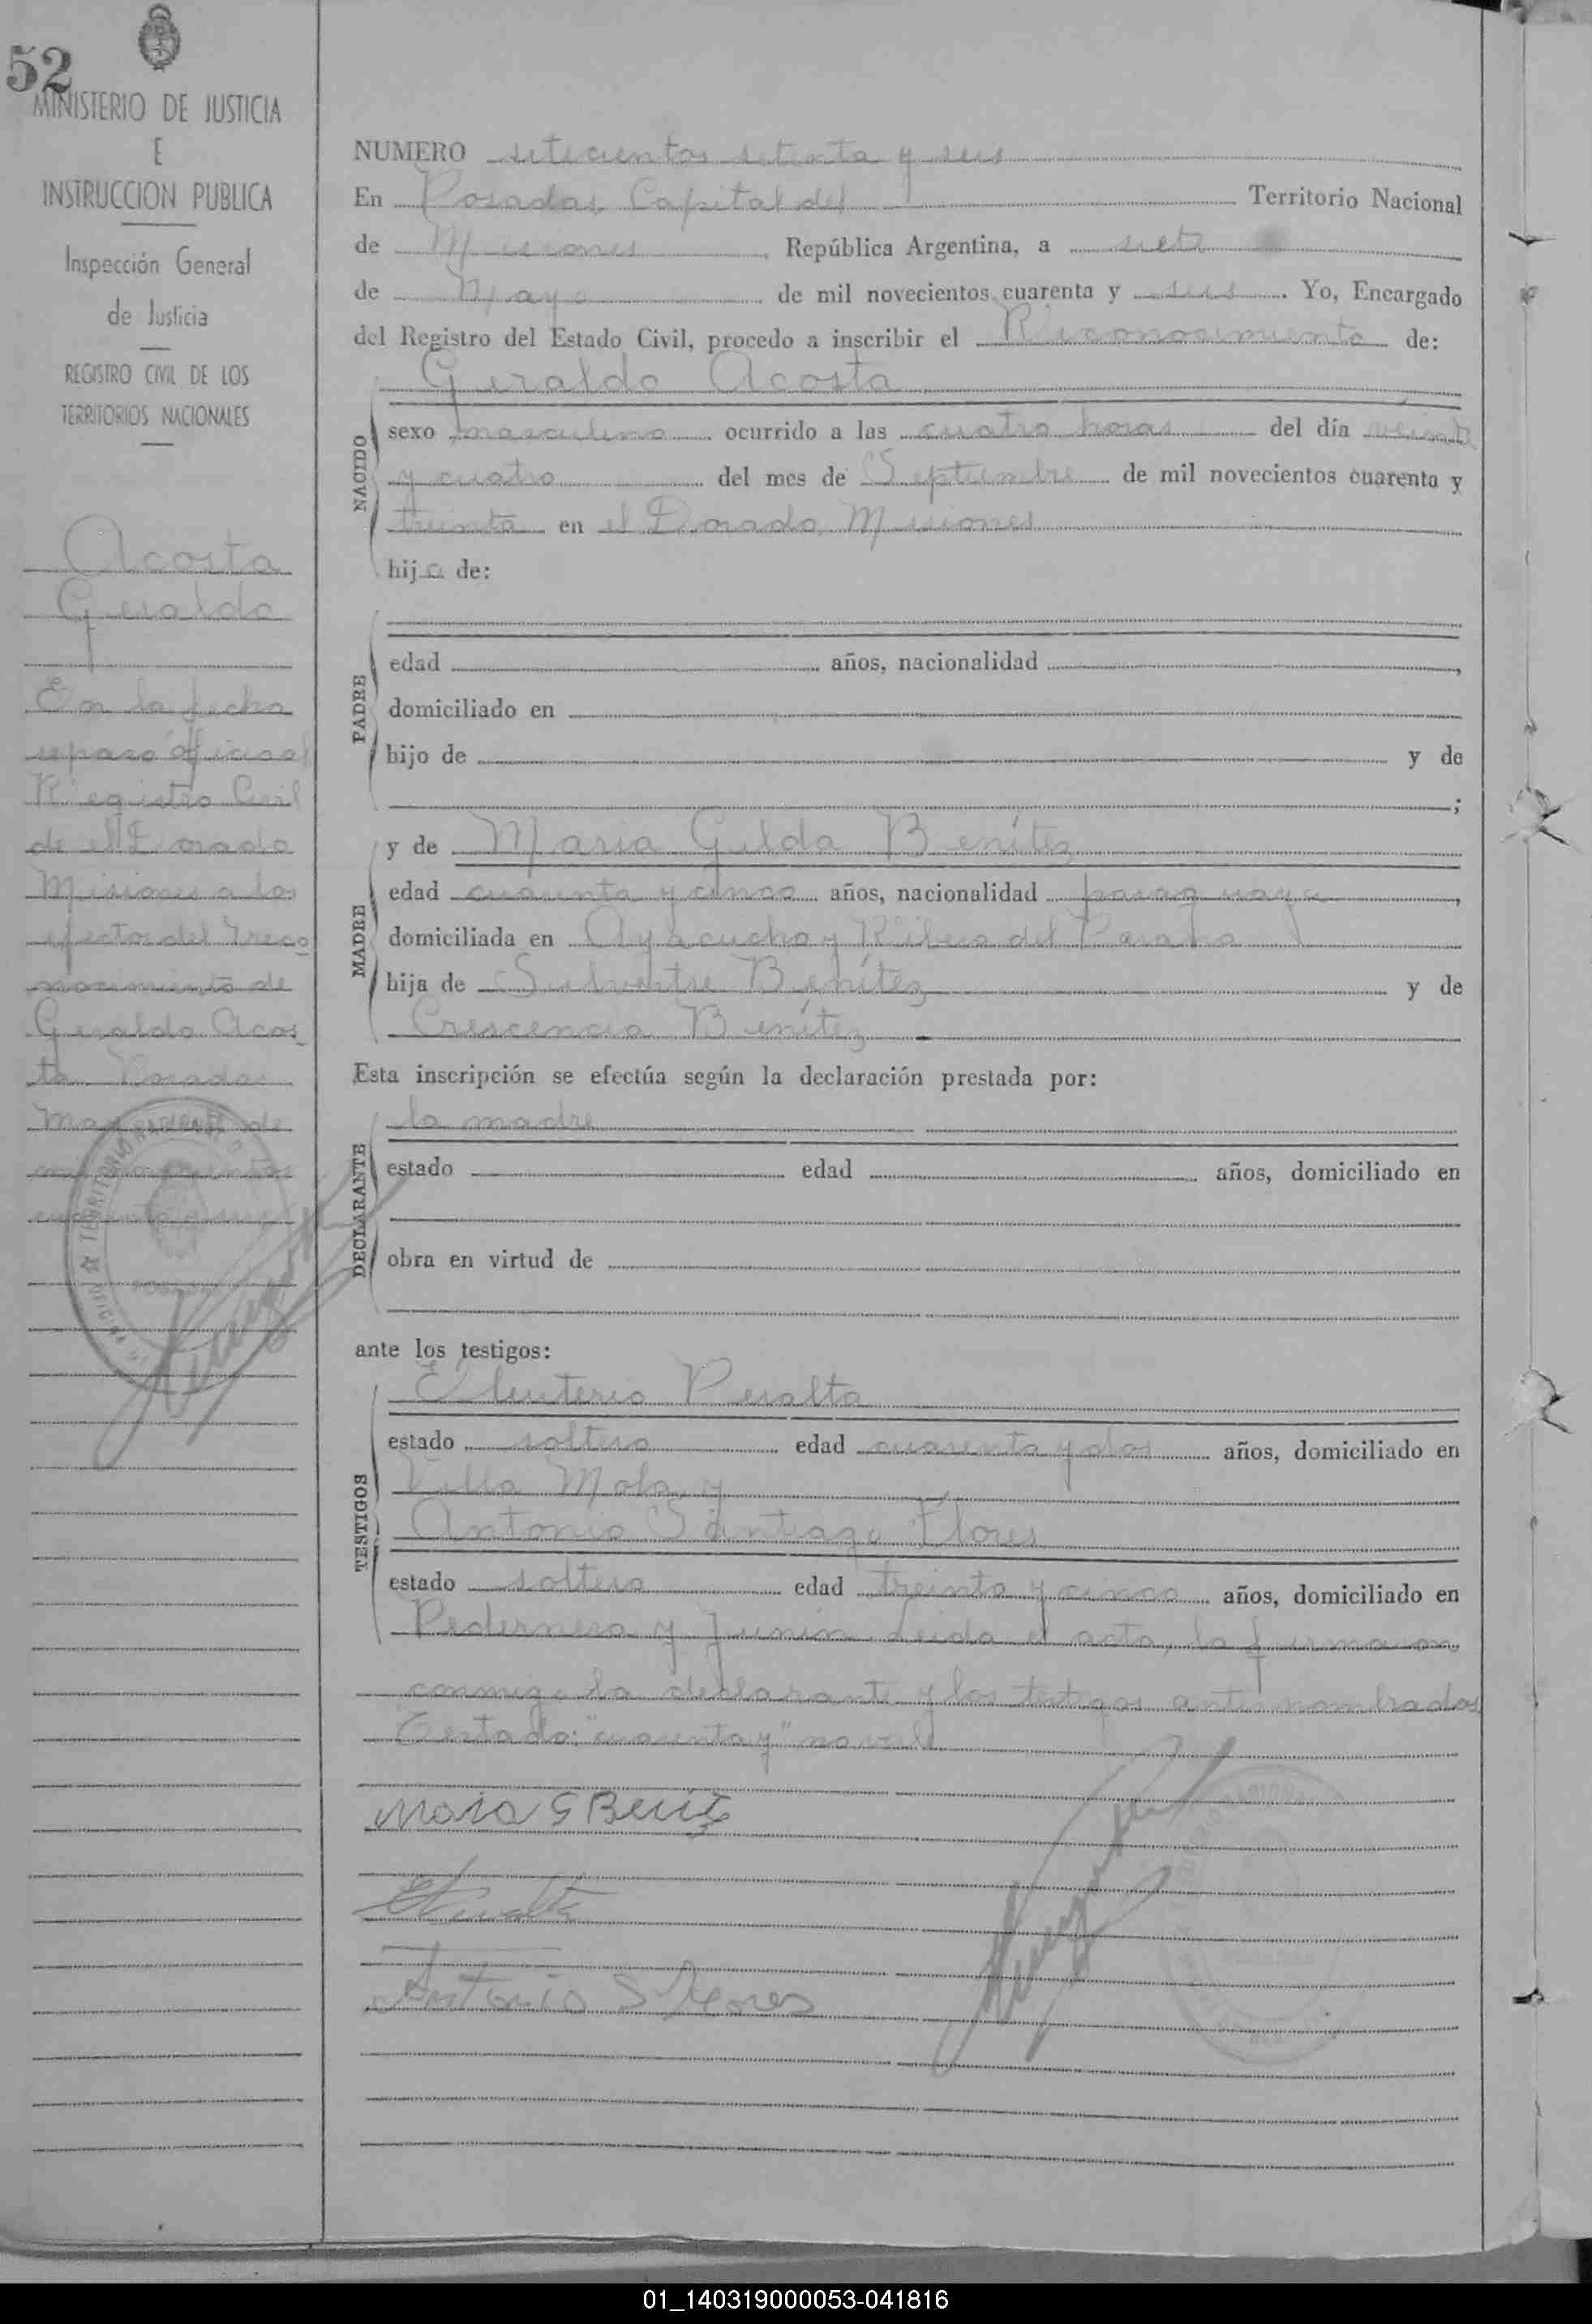 52
MINISTERIO DE JUSTICIA
E
INSTRUCCION PUBLICA
Inspección General
de Justicia
REGISTRO CIVIL DE LOS
TERRITORIOS NACIONALES
Acosta
Geraldo
En la fecha
se paso oficio al
Registro Civil
de el Dorado
Misiones a los
efectos del reco
nocimiento de
Geraldo Acos
ta Posadas
de
cuarenta y seis
NUMERO setecientos setenta y seis
En Posadas, Capital del Territorio Nacional
de Misiones, República Argentina, a siete
de Mayo de mil novecientos cuarenta y seis. Yo, Encargado
del Registro del Estado Civil, procedo a inscribir el Reconocimiento de:
Geraldo Acosta
NACIDO
sexo masculino ocurrido a las cuatro horas del día veinte
y cuatro del mes de Septiembre de mil novecientos cuarenta y
treinta en el Dorado, Misiones
hijo de:
PADRE
edad años, nacionalidad ,
domiciliado en
hijo de y de
;
y de Maria Gilda Benítez
MADRE
edad cuarenta y cinco años, nacionalidad paraguaya,
domiciliada en Ayacucho y Ribera del Paraná
hija de Silvestre Benítez y de
Crescencia Benítez
Esta inscripción se efectúa según la declaración prestada por:
la madre
DECLARANTE
estado edad años, domiciliado en
obra en virtud de
ante los testigos:
Eleuterio Peralta
TESTIGOS
estado soltero edad cuarenta y dos años, domiciliado en
Villa Mola, y
Antonio Santiago Flores
estado soltero edad treinta y cinco años, domiciliado en
Pedernera y Junín. Leida el acta, la firmaron
conmigo la declarante y los testigos antes nombrados
Testado: "cuarenta y" no vale
Maria G Benitez
EPeralta
Antonio S Flores
01_140319000053-041816